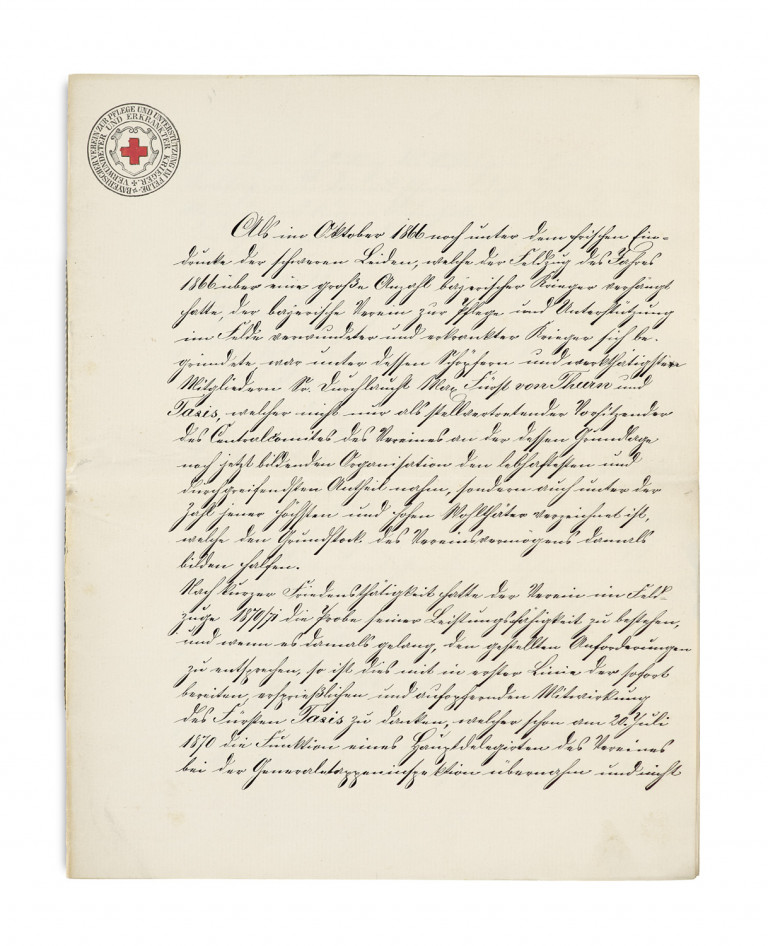 BAYERISCHER VEREIN ZUR PFLEGE UND UNTERSTÜTZUNG IM FELDE
VERWUNDETER UND ERKRANKTER KRIEGER.
Als im Oktober 1866 noch unter dem frischen Ein-
drucke der schweren Leiden, welche der Feldzug des Jahres
1866 über eine große Anzahl bayerischer Krieger verhängt
hatte, der bayerische Verein zur Pflege und Unterstützung
im Felde verwundeter und erkrankter Krieger sich be-
gründete war unter dessen Schöpfern und werkthätigsten
Mitgliedern Sr. Durchlaucht Max Fürst von Thurn und
Taxis, welcher nicht nur als stellvertretender Vorsitzender
des Centralcomites des Vereines an der dessen Grundlage
noch jetzt bildenden Organisation den lebhaftesten und
durchgreifendsten Antheil nahm, sondern auch unter der
Zahl jener höchsten und hohen Wohlthäter verzeichnet ist,
welche den Grundstock des Vereinsvermögens damals
bilden halfen.
Nach kurzer Friedensthätigkeit hatte der Verein im Feld-
zuge 1870/71 die Probe seiner Leistungsfähigkeit zu bestehen,
und wenn es damals gelang, den gestellten Anforderungen
zu entsprechen, so ist dies mit in erster Linie der sofort
bereiten, ersprießlichen und aufopfernden Mitwirkung
des Fürsten Taxis zu danken, welcher schon am 20. Juli
1870 die Funktion eines Hauptdelegirten des Vereines
bei der Generaletappeninspektion übernahm und nicht